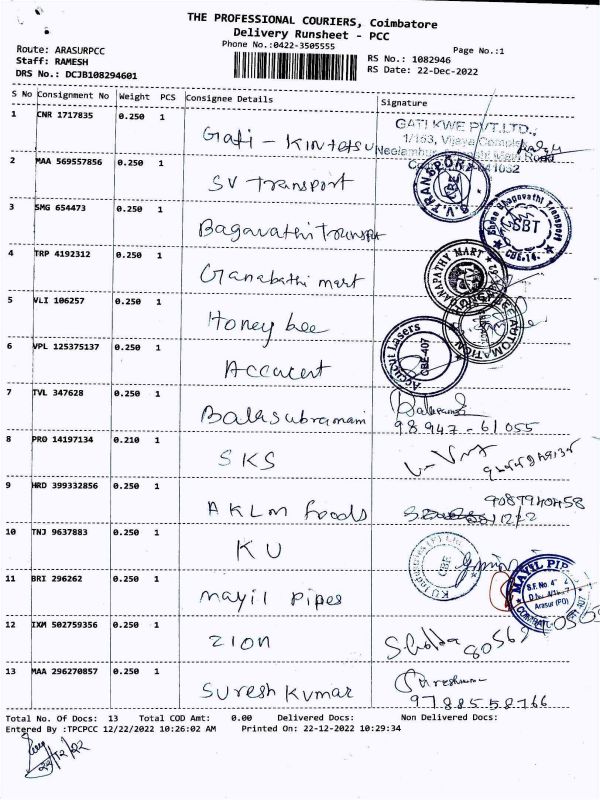 THE PROFESSIONAL COURIERS, Coimbatore
Delivery Runsheet - PCC
Phone No.:0422-3505555
Page No.:1
Route: ARASURPCC
Staff: RAMESH
DRS No.: DCJB108294601
RS No.: 1082946
RS Date: 22-Dec-2022
S No Consignment No Weight PCS Consignee Details Signature
1 CNR 1717835 0.250 1 Gati - Kintetsu
GATI KWE PVT.LTD.,
1/163, Vijaya Complex
2 MAA 569557856 0.250 1 SV Transport
S.V. TRANSPORT CBE
3 SMG 654473 0.250 1 Bagavathi Transpt
Shree Bhagavathi Transport SBT CBE.14.
4 TRP 4192312 0.250 1 Ganabathi mart
GANAPATHY MART
5 VLI 106257 0.250 1 Honey bee
AUTOMATION
6 VPL 125375137 0.250 1 Accucut
Accucut Lasers CBE-407
7 TVL 347628 0.250 1 Balasubramani
98947-61055
8 PRO 14197134 0.210 1 SKS
9 HRD 399332856 0.250 1 AKLM Foods
9087940458
10 TNJ 9637883 0.250 1 KU
KU Industries (P) Ltd CBE
11 BRI 296262 0.250 1 mayil pipes
MAYIL PIPE
Arasur (PO)
12 IXM 502759356 0.250 1 ZION
80569
13 MAA 296270857 0.250 1 Suresh Kumar
9788558766
Total No. Of Docs: 13 Total COD Amt: 0.00 Delivered Docs: Non Delivered Docs:
Entered By :TPCPCC 12/22/2022 10:26:02 AM Printed On: 22-12-2022 10:29:34
22/12/22